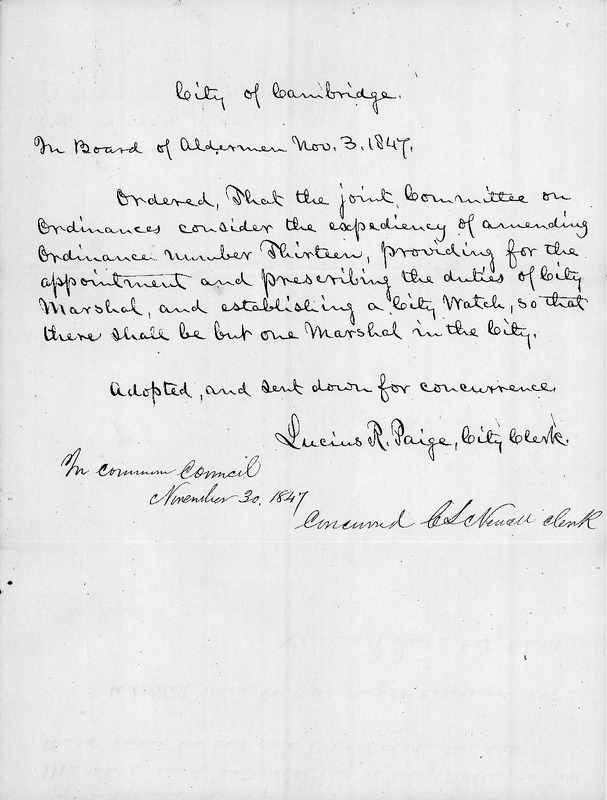 City of Cambridge.
In Board of Aldermen Nov. 3. 1847.
Ordered, That the joint Committee on
Ordinances consider the expediency of amending
Ordinance number Thirteen, providing for the
appointment and prescribing the duties of City
Marshal, and establishing a City Watch, so that
there shall be but one Marshal in the City.
Adopted, and sent down for concurrence.
Lucius R. Paige, City Clerk.
In Common Council
November 30. 1847
Concurred C S Newell Clerk